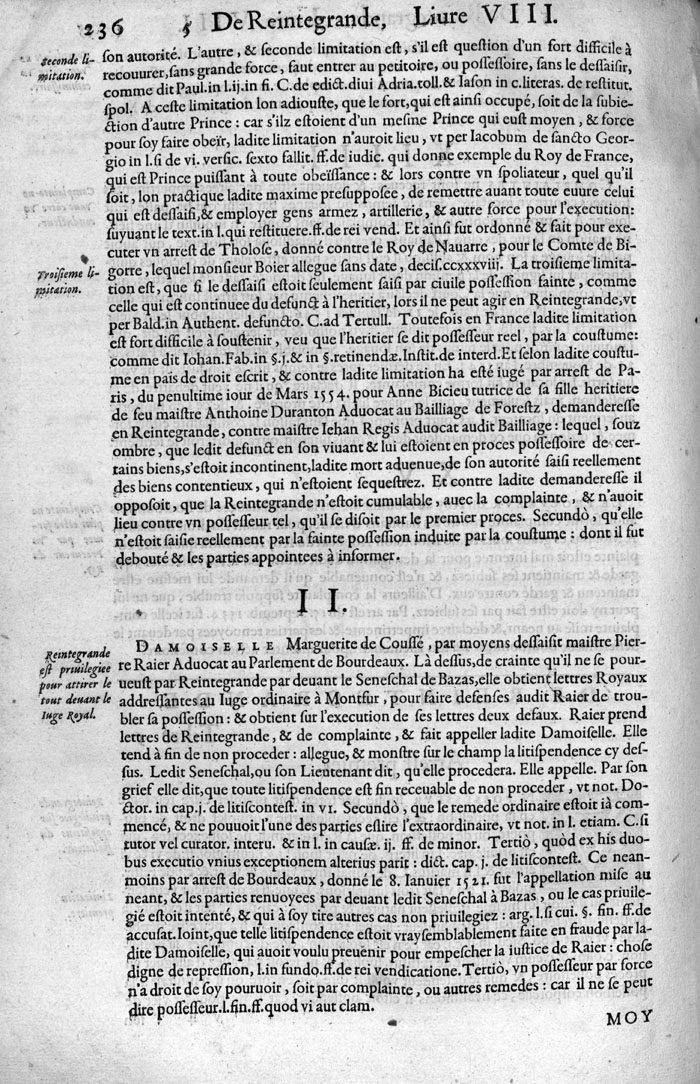 236 5 De Reintegrande, Liure VIII.
Seconde li-
mitation.
son autorité. L'autre, & seconde limitation est, s'il est question d'un fort difficile à
recouurer, sans grande force, faut entrer au petitoire, ou possessoire, sans le dessaisir,
comme dit Paul. in l. ij. in fi. C. de edict. diui Adria. toll. & Iason in c. literas. de restitut.
spol. A ceste limitation lon adiouste, que le fort, qui est ainsi occupé, soit de la subie-
ction d'autre Prince : car s'ilz estoient d'un mesme Prince qui eust moyen, & force
pour soy faire obeïr, ladite limitation n'auroit lieu, vt per Iacobum de sancto Geor-
gio in l. si de vi. versic. sexto fallit. ff. de iudic. qui donne exemple du Roy de France,
qui est Prince puissant à toute obeïssance : & lors contre vn spoliateur, quel qu'il
soit, lon practique ladite maxime presupposee, de remettre auant toute euure celui
qui est dessaisi, & employer gens armez, artillerie, & autre force pour l'execution:
suyuant le text. in l. qui restituere. ff. de rei vend. Et ainsi fut ordonné & fait pour exe-
cuter vn arrest de Tholose, donné contre le Roy de Nauarre, pour le Comte de Bi-
Troisieme li-
mitation.
gorre, lequel monsieur Boier allegue sans date, decis. ccxxxviij. La troisieme limita-
tion est, que si le dessaisi estoit seulement saisi par ciuile possession fainte, comme
celle qui est continuee du defunct à l'heritier, lors il ne peut agir en Reintegrande, vt
per Bald. in Authent. defuncto. C. ad Tertull. Toutefois en France ladite limitation
est fort difficile à soustenir, veu que l'heritier se dit possesseur reel, par la coustume:
comme dit Iohan. Fab. in §. j. & in §. retinendæ. Instit. de interd. Et selon ladite coustu-
me en païs de droit escrit, & contre ladite limitation ha esté iugé par arrest de Pa-
ris, du penultime iour de Mars 1554. pour Anne Bicieu tutrice de sa fille heritiere
de feu maistre Anthoine Duranton Aduocat au Bailliage de Forestz, demanderesse
en Reintegrande, contre maistre Iehan Regis Aduocat audit Bailliage: lequel, souz
ombre, que ledit defunct en son viuant & lui estoient en proces possessoire de cer-
tains biens, s'estoit incontinent, ladite mort aduenue, de son autorité saisi reellement
des biens contentieux, qui n'estoient sequestrez. Et contre ladite demanderesse il
opposoit, que la Reintegrande n'estoit cumulable, auec la complainte, & n'auoit
lieu contre vn possesseur tel, qu'il se disoit par le premier proces. Secundò, qu'elle
n'estoit saisie reellement par la fainte possession induite par la coustume : dont il fut
debouté & les parties appointees à informer.
II.
Reintegrande
est priuilegiee
pour attirer le
tout deuant le
Iuge Royal.
DAMOISELLE Marguerite de Coussé, par moyens dessaisit maistre Pier-
re Raier Aduocat au Parlement de Bourdeaux. Là dessus, de crainte qu'il ne se pour-
ueust par Reintegrande par deuant le Seneschal de Bazas, elle obtient lettres Royaux
addressantes au Iuge ordinaire à Montsur, pour faire defenses audit Raier de trou-
bler sa possession : & obtient sur l'execution de ses lettres deux defaux. Raier prend
lettres de Reintegrande, & de complainte, & fait appeller ladite Damoiselle. Elle
tend à fin de non proceder : allegue, & monstre sur le champ la litispendence cy des-
sus. Ledit Seneschal, ou son Lieutenant dit, qu'elle procedera. Elle appelle. Par son
grief elle dit, que toute litispendence est fin receuable de non proceder, vt not. Do-
ctor. in cap. j. de litiscontest. in VI. Secundò, que le remede ordinaire estoit ià com-
mencé, & ne pouuoit l'une des parties eslire l'extraordinaire, vt not. in l. etiam. C. si
tutor vel curator. interu. & in l. in causæ. ij. ff. de minor. Tertiò, quòd ex his duo-
bus executio vnius exceptionem alterius parit : dict. cap. j. de litiscontest. Ce nean-
moins par arrest de Bourdeaux, donné le 8. Ianuier 1521. fut l'appellation mise au
neant, & les parties renuoyees par deuant ledit Seneschal à Bazas, ou le cas priuile-
gié estoit intenté, & qui à soy tire autres cas non priuilegiez : arg. l. si cui. §. fin. ff. de
accusat. Ioint, que telle litispendence estoit vraysemblablement faite en fraude par la-
dite Damoiselle, qui auoit voulu preuenir pour empescher la iustice de Raier : chose
digne de repression, l. in fundo. ff. de rei vendicatione. Tertiò, vn possesseur par force
n'a droit de soy pouruoir, soit par complainte, ou autres remedes : car il ne se peut
dire possesseur. l. fin. ff. quod vi aut clam.
MOY